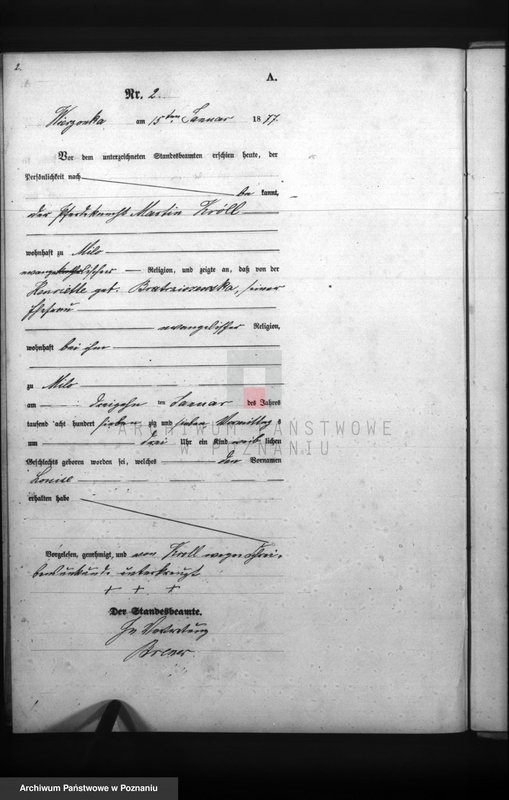 2.
A.
Nr. 2.
am 15ten Januar 1877.
Vor dem unterzeichneten Standesbeamten erschien heute, der
Persönlichkeit nach
be kannt,
der Pferdeknecht Martin Kröll
wohnhaft zu Milo
evangelischer Religion, und zeigte an, daß von der
Henriette geb. seiner
Ehefrau
evangelischer Religion,
wohnhaft bei ihm
zu Milo
am dreizehn ten Januar des Jahres
tausend acht hundert sieben zig und sieben Vormittag s
um drei Uhr ein Kind weib lichen
Geschlechts geboren worden sei, welches den Vornamen
Louise
erhalten habe
Vorgelesen, genehmigt, und von Kroll wegen Schrei-
bensunkunde unterkreuzt
+ + +
Der Standesbeamte.
In Vertretung
ARCHIWUM PAŃSTWOWE
W POZNANIU
Archiwum Państwowe w Poznaniu